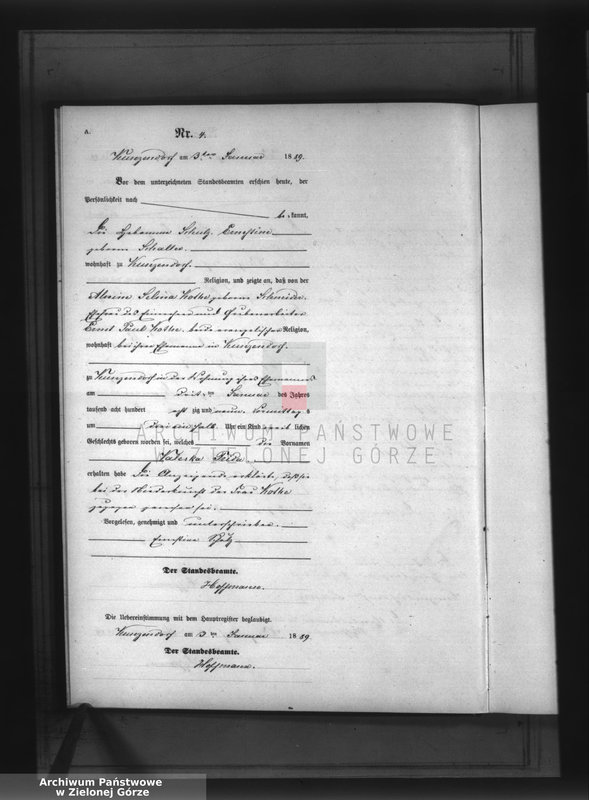 a.
Nr. 4.
Kunzendorf am 3ten Januar 1889.
Vor dem unterzeichneten Standesbeamten erschien heute, der
Persönlichkeit nach
be kannt,
die Hebamme Schulz, Ernestine
geborene Schaller
wohnhaft zu Kunzendorf.
Religion, und zeigte an, daß von der
Selma Kothe geborene Schneider,
Ehefrau des und Grubenarbeiter
Ernst Paul Kothe, beide evangelischer Religion,
wohnhaft bei ihrem Ehemanne in Kunzendorf.
zu Kunzendorf in der Wohnung ihres Ehemannes
am dritten Januar des Jahres
tausend acht hundert acht zig und neun Vormittag s
um drei ein halb Uhr ein Kind weib lichen
Geschlechts geboren worden sei, welches die Vornamen
Frida
erhalten habe. Die Anzeigende erklärte, daß sie
bei der Niederkunft der Frau Kothe
zugegen gewesen sei.
Vorgelesen, genehmigt und unterschrieben.
Ernstine
Der Standesbeamte.
Hoffmann.
Die Uebereinstimmung mit dem Hauptregister beglaubigt.
Kunzendorf am 3ten Januar 1889
Der Standesbeamte.
Hoffmann.
ARCHIWUM PAŃSTWOWE
W ZIELONEJ GÓRZE
Archiwum Państwowe
w Zielonej Górze